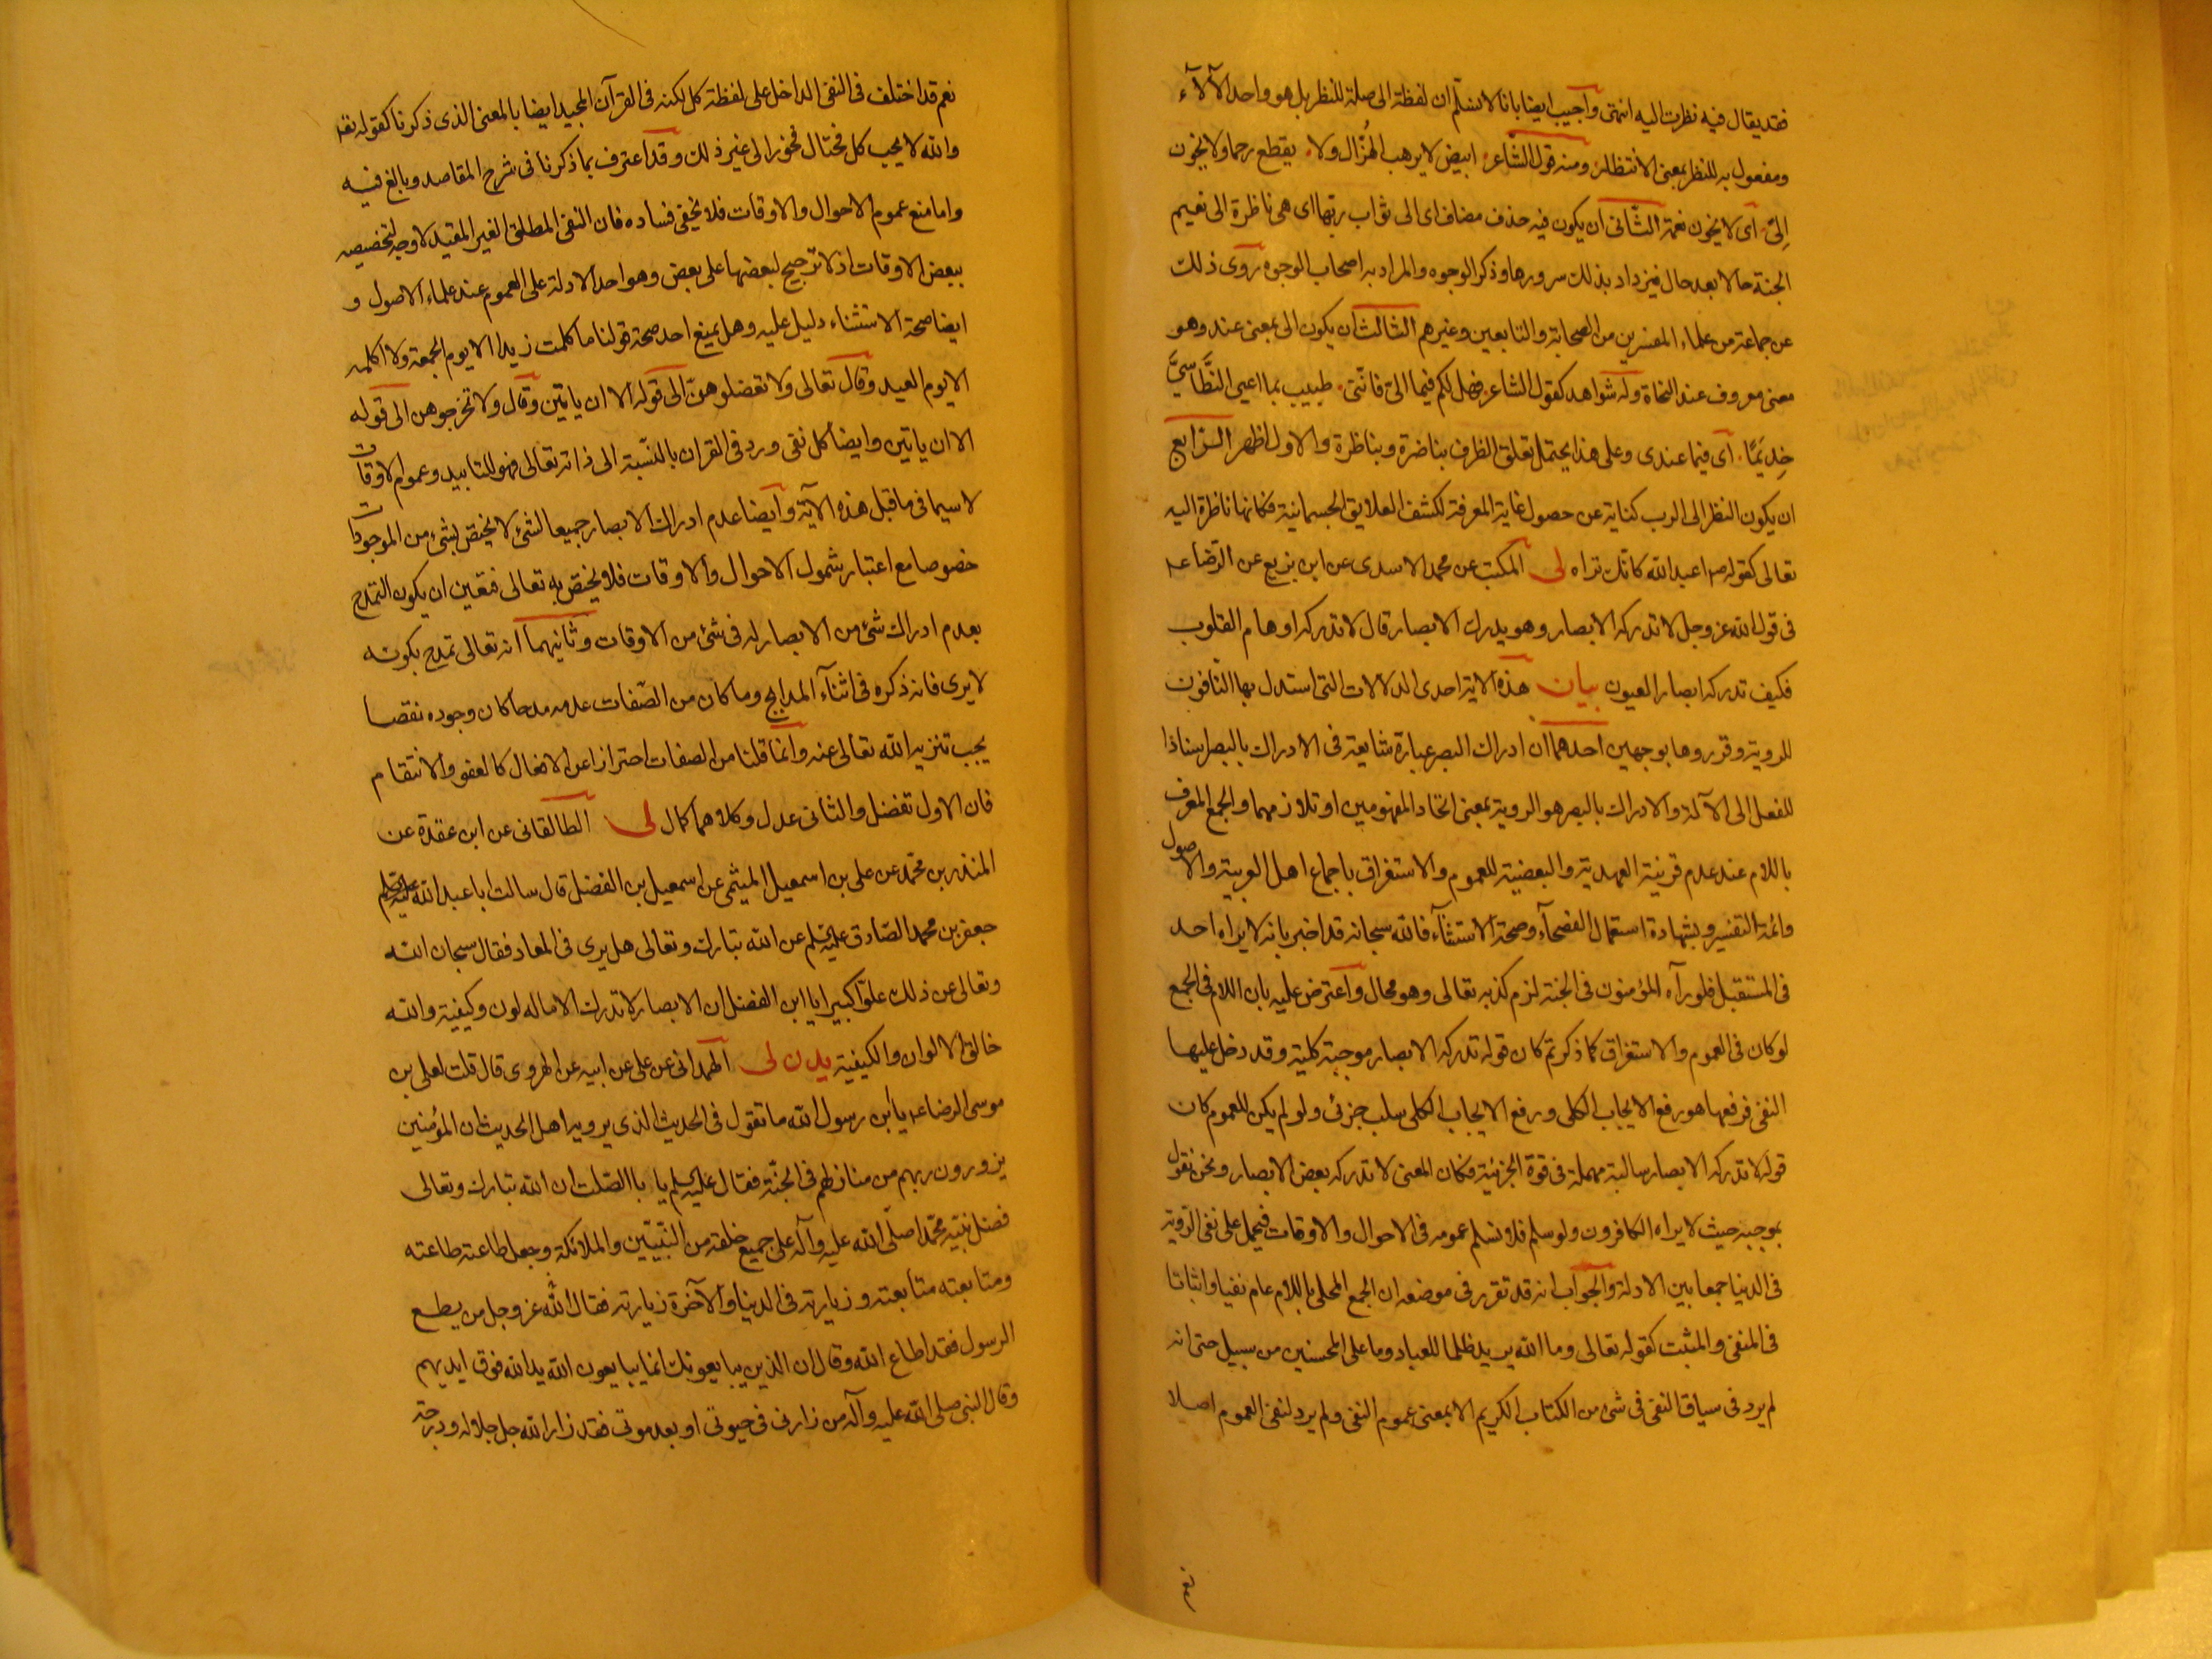 فقد يقال فيه نظرت اليه انتهى وأجيب ايضا بانا لا نسلّم ان لفظة الى صلة للنظر بل هو واحد الآلآء
ومفعول به للنظر بمعنى الانتظار ومنه قول الشاعر ابيض لا يرهب الهُزال ولا يقطع رحما ولا يخون
إلىً اى لا يخون نعمة الثانى ان يكون فيه حذف مضاف اى الى ثواب ربها اى هى ناظرة الى نعيم
الجنة حالا بعد حال فيزداد بذلك سرورها وذكر الوجوه والمراد به اصحاب الوجوه روى ذلك
عن جماعة من علماء المفسرين من الصحابة والتابعين وغيرهم الثالث ان يكون الى بمعنى عند وهو
معنى معروف عند النحاة وله شواهد كقول الشاعر فهل لكم فيما الىّ فانّنى طبيب بما اعيى النِّطاسىَّ
حِذيَمًا اى فيما عندى وعلى هذا يحتمل تعلق الظرف بناضرة وبناظرة والاول اظهر الرابع
ان يكون النظر الى الرب كناية عن حصول غاية المعرفة لكشف العلايق الجسمانية فكانها ناظرة اليه
تعالى كقوله ص اعبد الله كانّك تراه لى المكتب عن محمد الاسدى عن ابن بزيع عن الرّضا عـ
فى قول الله عز وجل لا تدركه الابصار وهو يدرك الابصار قال لا تدركه اوهام القلوب
فكيف تدركه ابصار العيون بيان هذه الاية احدى الدلالات التى استدل بها النّافون
للروية وقرروها بوجهين احدهما ان ادراك البصر عبارة شايعة فى الادراك بالبصر اسنادا
للفعل الى الآلة والادراك بالبصر هو الروية بمعنى اتحاد المفهومين او تلازمهما والجمع المعرف
باللام عند عدم قرينة العهدية والبعضية للعموم والاستغراق باجماع اهل العربية والاصول
وائمة التفسير وبشهادة استعمال الفصحآء وصحة الاستثنآء فالله سبحانه قد اخبر بانه لا يراه احد
فى المستقبل فلو رآه المؤمنون فى الجنة لزم كذبه تعالى وهو محال واعترض عليه بان اللام فى الجمع
لو كان فى العموم والاستغراق كما ذكرتم كان قوله تدركه الابصار موجبة كلية وقد دخل عليها
النفى فرفعها هو رفع الايجاب الكلى ورفع الايجاب الكلى سلب جزئى ولو لم يكن للعموم كان
قوله لا تدركه الابصار سالبة مهملة فى قوة الجزئية فكان المعنى لا تدركه بعض الابصار ونحن نقول
بموجبه حيث لا يراه الكافرون ولو سلم فلا نسلم عمومه فى الاحوال والاوقات فيحمل على نفى الروية
فى الدنيا جمعا بين الادلة والجواب انه قد تقرر فى موضعه ان الجمع المحلى باللام عام نفيا واثباتا
فى المنفى والمثبت كقوله تعالى وما الله يريد ظلما للعباد وما على المحسنين من سبيل حتى انه
لم يرد فى سياق النفى فى شئ من الكتاب الكريم الا بمعنى عموم النفى ولم يرد لنفى العموم اصلا
نعم قد اختلف فى النفى الداخل على لفظة كل لكنه فى القرآن المجيد ايضا بالمعنى الذى ذكرنا كقوله تعا
والله لا يحب كل مختال فخور الى غير ذلك وقد اعترف بما ذكرنا فى شرح المقاصد وبالغ فيه
واما منع عموم الاحوال والاوقات فلا يخفى فساده فان النفى المطلق الغير المقيد لا وجه لتخصيصه
ببعض الاوقات اذ لا ترجيح لبعضها على بعض وهو احد الادلة على العموم عند علماء الاصول و
ايضا صحة الاستثناء دليل عليه وهل يمنع احد صحة قولنا ما كلمت زيدا الا يوم الجمعة ولا اكلمه
الا يوم العيد وقال تعالى ولا تعضلوهنّ الى قوله الا ان ياتين وقال ولا تخرجوهن الى قوله
الا ان ياتين وايضا كل نفى ورد فى القران بالنّسبة الى ذاته تعالى فهو للتابيد وعموم الاوقات
لا سيما فى ما قبل هذه الآية وايضا عدم ادراك الابصار جميعا لشئ لا يختص بشئ من الموجودات
خصوصا مع اعتبار شمول الاحوال والاوقات فلا يختص به تعالى فتعين ان يكون التمدح
بعدم ادراك شئ من الابصار له فى شئ من الاوقات وثانيهما انه تعالى تمدح بكونه
لا يرى فانه ذكره فى اثنآء المدايح وما كان من الصّفات عدمه مدحا كان وجوده نقصا
يجب تنزيه الله تعالى عنه وانّما قلنا من الصفات احترازا عن الافعال كالعفو والانتقام
فان الاول تفضل والثانى عدل وكلاهما كمال لى الطالقانى عن ابن عقدة عن
المنذر بن محمّد عن على بن اسمعيل الميثمى عن اسمعيل بن الفضل قال سالت ابا عبد الله عليه السلم
جعفر بن محمد الصّادق عليه السلم عن الله تبارك وتعالى هل يرى فى المعاد فقال سبحان الله
وتعالى عن ذلك علوّا كبيرا يا ابن الفضل ان الابصار لا تدرك الا ما له لون وكيفية والله
خالق الالوان والكيفية يد ن لى الهمدانى عن على عن ابيه عن الهروى قال قلت لعلى بن
موسى الرضا عـ يا ابن رسول الله ما تقول فى الحديث الذى يرويه اهل الحديث ان المؤمنين
يزورون ربهم من منازلهم فى الجنّة فقال عليه السلم يا با الصّلت ان الله تبارك وتعالى
فضل نبيّه محمّدا صلّى الله عليه وآله على جميع خلقه من النّبيّين والملائكة وجعل طاعته طاعته
ومتابعته متابعته وزيارته فى الدنيا والآخرة زيارته فقال الله عز وجل من يطع
الرسول فقد اطاع الله وقال ان الذين يبايعونك انما يبايعون الله يد الله فوق ايديهم
وقال النبى صلى الله عليه وآله من زارنى فى حيوتى او بعد موتى فقد زار الله جل جلاله ودرجة